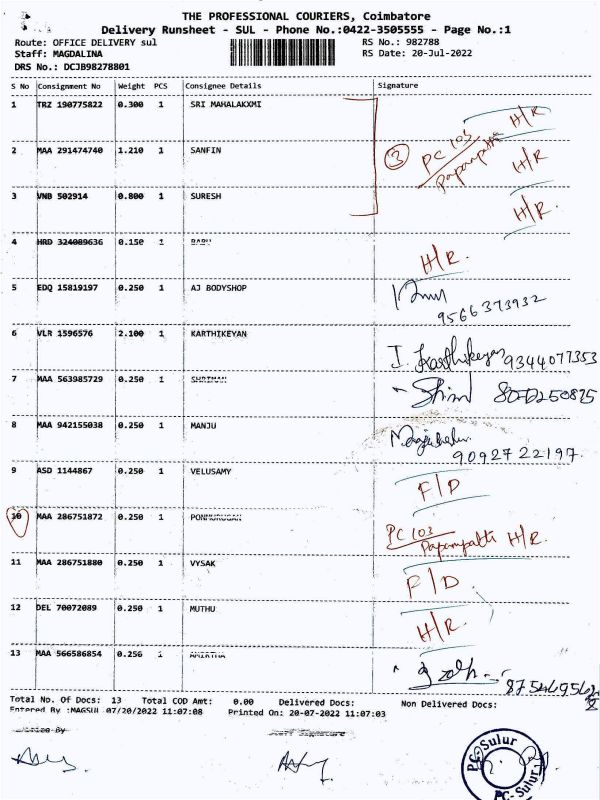 THE PROFESSIONAL COURIERS, Coimbatore
Delivery Runsheet - SUL - Phone No.:0422-3505555 - Page No.:1
Route: OFFICE DELIVERY sul RS No.: 982788
Staff: MAGDALINA RS Date: 20-Jul-2022
DRS No.: DCJB98278801
S No Consignment No Weight PCS Consignee Details Signature
1 TRZ 190775822 0.300 1 SRI MAHALAKXMI H/R
3 PC 103 Papampatti
2 MAA 291474740 1.210 1 SANFIN H/R
3 VNB 502914 0.800 1 SURESH H/R
4 HRD 324089636 0.150 1 BABU H/R.
5 EDQ 15819197 0.250 1 AJ BODYSHOP 9566373932
6 VLR 1596576 2.100 1 KARTHIKEYAN I. Karthikeyan 9344077353
7 MAA 563985729 0.250 1 SHRIMAN
8 MAA 942155038 0.250 1 MANJU 9092722197.
9 ASD 1144867 0.250 1 VELUSAMY F/D
10 MAA 286751872 0.250 1 PONMURUGAN PC 103 Papampatti H/R.
11 MAA 286751880 0.250 1 VYSAK F/D.
12 DEL 70072089 0.250 1 MUTHU H/R.
13 MAA 566586854 0.256 1 AMIRTHA
Total No. Of Docs: 13 Total COD Amt: 0.00 Delivered Docs: Non Delivered Docs:
Entered By :MAGSUL 07/20/2022 11:07:08 Printed On: 20-07-2022 11:07:03
Staff Signature
PC-Sulur
PC-Sulur